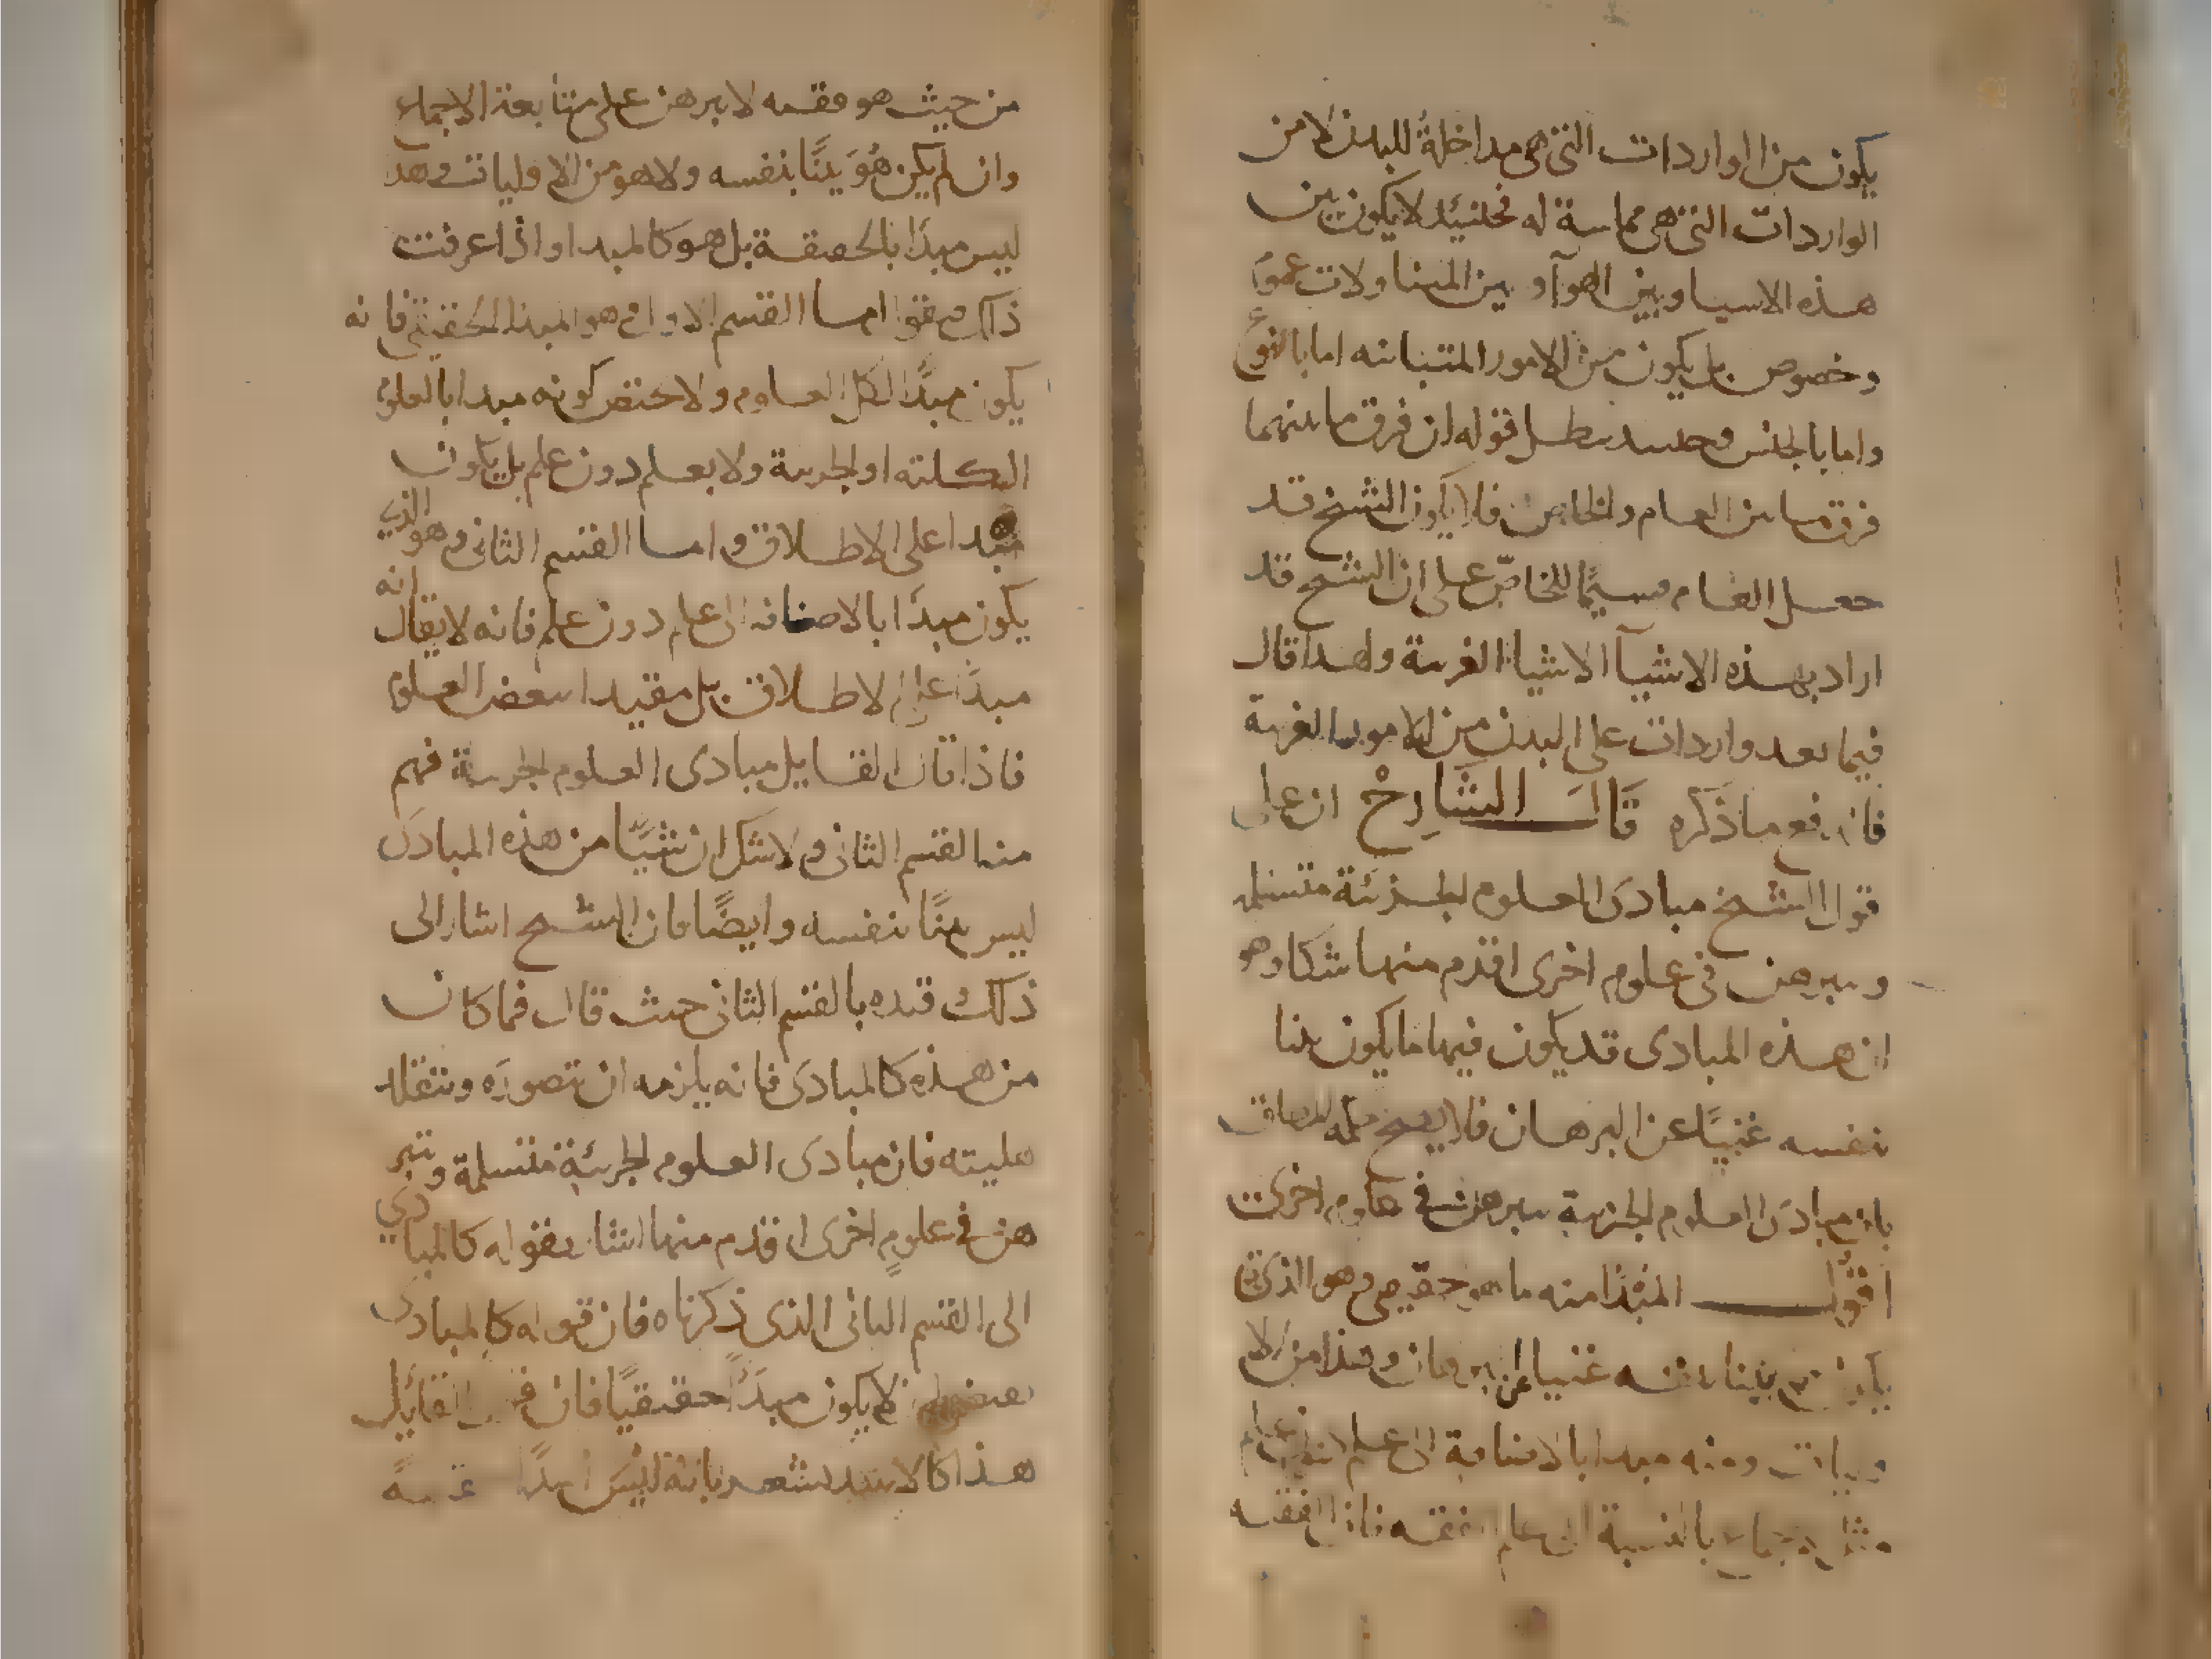 يكون من الواردات التى هى مداخلة للبدن لا من
الواردات التى هى مماسة له فحينئذ لا يكون بين
هذه الاسيا وبين الهوآ و بين المتناولات عموم
وخصوص بل يكون من الامور المتباينه اما بالنوع
واما بالجنس وحينئد يبطل قوله ان فرق ما بينهما
فرق ما بين العام والخاص فلا يكون الشيخ قد
جعل العام قسيمًا للخاصّ على ان الشيخ قد
اراد بهذه الاشيآ الاشيا الغريبة ولهذا قال
فيما بعد واردات على البدن من الامور الغريبة
فاندفع ما ذكره قَالَ الشَارِحْ ان على
قول الشيخ مبادى العلوم الجزئة متسلمه
و يبرهن فى علوم اخرى اقدم منها شكا وهو
ان هذه المبادى قد يكون فيها ما يكون بينا
بنفسه غنيًا عن البرهان فلا يصح
بان مبادى العلوم الجزية يبرهن فى علوم اخرى
اقول المبدَا منه ما هو حقيقى وهو الذى
يكون بينا بنفسه غنيا عن البرهان وهذا من الاو
ليات ومنه مبدا بالاضافة الى علم
مثل الاجماع بالنسبة الى علم الفقه فان الفقيه
من حيث هو فقيه لا يبرهن على متابعة الاجماع
وان لم يكن هُوَ بينًا بنفسه ولا هو من الاوليات وهذ
ليس مبدًا بالحقيقة بل هو كالمبدا واذا عرفت
ذلك فنقول اما القسم الاول وهو المبدا الحقيقى فانه
يكون مبدًا لكل العلوم ولا يختص كونه مبدا بالعلوم
الكلية او الجزية ولا بعلم دون علم بل يكون
مبدا على الاطلاق و اما القسم الثانى وهو الذى
يكون مبدَا بالاضافه الى علم دون علم فانه لا يقال انه
مبدًا على الاطلاق بل مقيدا ببعض العلوم
فاذا قال القايل مبادى العلوم الجزية فهم
منه القسم الثانى ولا شك ان شيًا من هذه المبادى
ليس بينًا بنفسه وايضًا فان الشيخ اشار الى
ذلك و قيده بالقسم الثانى حيث قال فما كان
من هذه كالمبادى فانه يلزمه ان يتصوره ويتقلد
هليته فان مبادى العلوم الجزئية متسلمة وتبر
هن فى علوم اخرى اقدم منها اشار بقوله كالمبادي
الى القسم الثانى الذى ذكرناه فان قوله كالمبادى
يقتضى ان لا يكون مبدَأً حقيقيًا فان قول القائيل
هذا كالاسد يشعر بانه ليس اسدًا حقيقةً